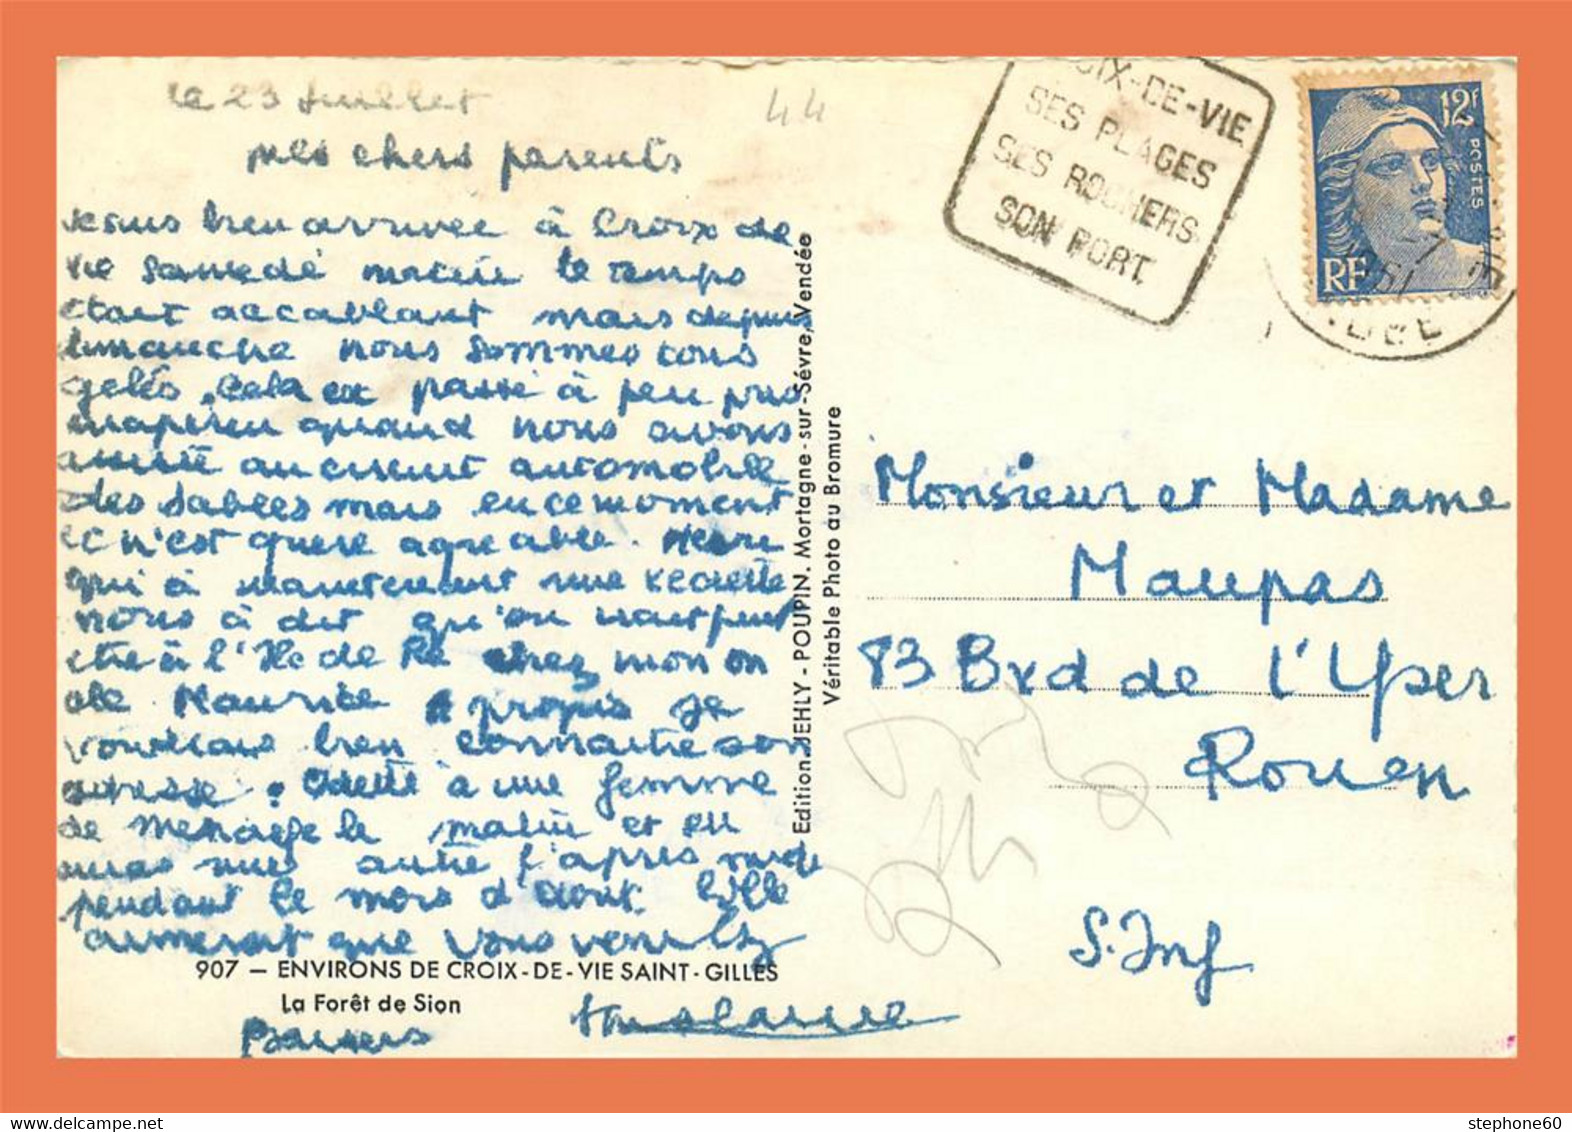 le 23 Juillet
44
mes chers parents
Je suis bien arrivée à Croix de
vie samedi matin le temps
était accablant mais depuis
dimanche nous sommes tous
gelés. Cela est passé à peu près
inaperçu quand nous avons
assisté au circuit automobile
des Sables mais en ce moment
ce n'est guère agréable. Henri
qui à maintenant une vedette
nous à dit qu'on irait peut
être à l'Ile de Ré chez mon on
de Maurice A propos je
voudrais bien connaitre son
adresse. Odette à une femme
de menage le matin et en
aura une autre l'après midi
pendant le mois d'aout. Elle
aimerait que vous veniez
Baisers
907 — ENVIRONS DE CROIX-DE-VIE SAINT-GILLES
La Forêt de Sion
Edition JEHLY-POUPIN. Mortagne-sur-Sèvre, Vendée
Véritable Photo au Bromure
OIX-DE-VIE
SES PLAGES
SES ROCHERS
SON PORT
12F
POSTES
RF
Monsieur et Madame
Maupas
83 Bvd de l'Yser
Rouen
S. Inf
stephone60